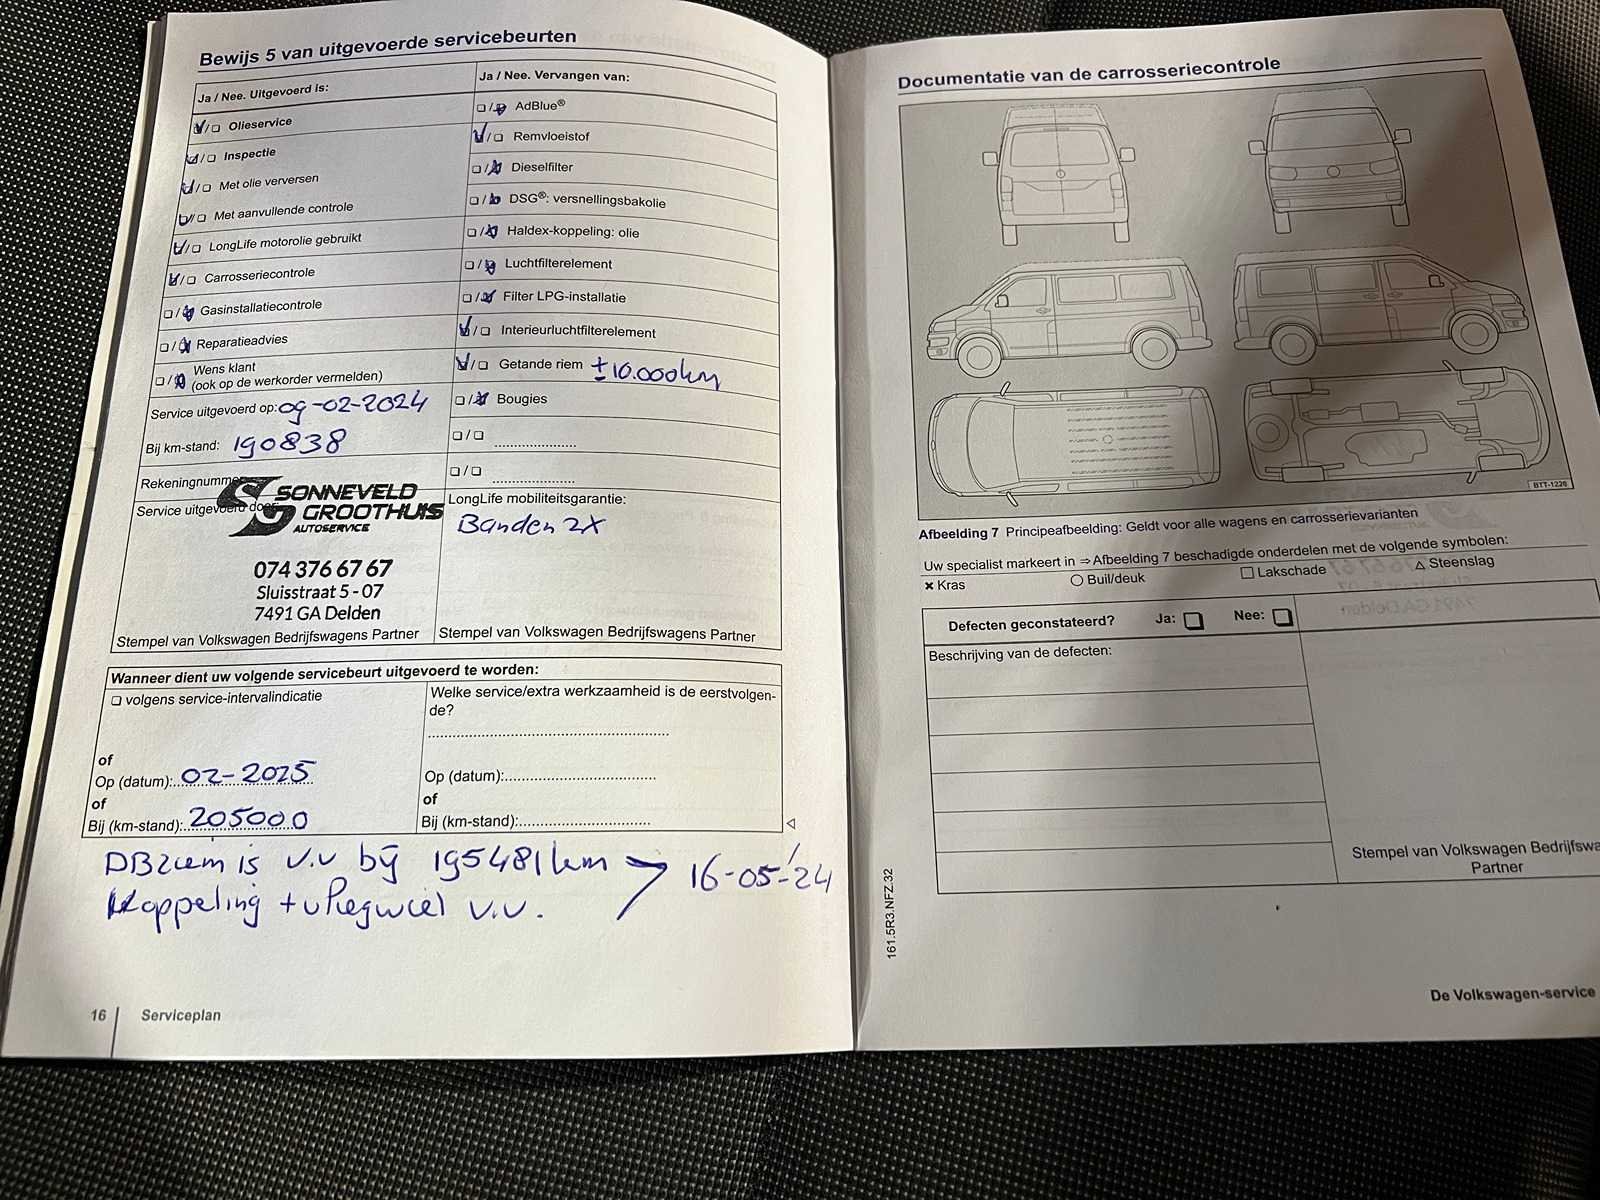 Bewijs 5 van uitgevoerde servicebeurten
Ja / Nee. Uitgevoerd is:
Olieservice
Inspectie
Met olie verversen
Met aanvullende controle
LongLife motorolie gebruikt
Carrosseriecontrole
Gasinstallatiecontrole
Reparatieadvies
Wens klant
(ook op de werkorder vermelden)
Service uitgevoerd op: 09-02-2024
Bij km-stand: 190838
Rekeningnummer
Service uitgevoerd door
SONNEVELD
GROOTHUIS
AUTOSERVICE
074 376 67 67
Sluisstraat 5 - 07
7491 GA Delden
Stempel van Volkswagen Bedrijfswagens Partner
Ja / Nee. Vervangen van:
AdBlue®
Remvloeistof
Dieselfilter
DSG®: versnellingsbakolie
Haldex-koppeling: olie
Luchtfilterelement
Filter LPG-installatie
Interieurluchtfilterelement
Getande riem ±10.000km
Bougies
LongLife mobiliteitsgarantie:
Banden 2X
Stempel van Volkswagen Bedrijfswagens Partner
Wanneer dient uw volgende servicebeurt uitgevoerd te worden:
volgens service-intervalindicatie
of
Op (datum): 02-2025
of
Bij (km-stand): 205000
Welke service/extra werkzaamheid is de eerstvolgen-
de?
Op (datum):
of
Bij (km-stand):
DBriem is v.v bij 195481km
Koppeling + vliegwiel v.v.
16-05-'24
16 Serviceplan
Documentatie van de carrosseriecontrole
BTT-1226
Afbeelding 7 Principeafbeelding: Geldt voor alle wagens en carrosserievarianten
Uw specialist markeert in ⇒ Afbeelding 7 beschadigde onderdelen met de volgende symbolen:
× Kras ○ Buil/deuk □ Lakschade △ Steenslag
Defecten geconstateerd? Ja: Nee:
Beschrijving van de defecten:
Stempel van Volkswagen Bedrijfswa
Partner
161.5R3.NFZ.32
De Volkswagen-service